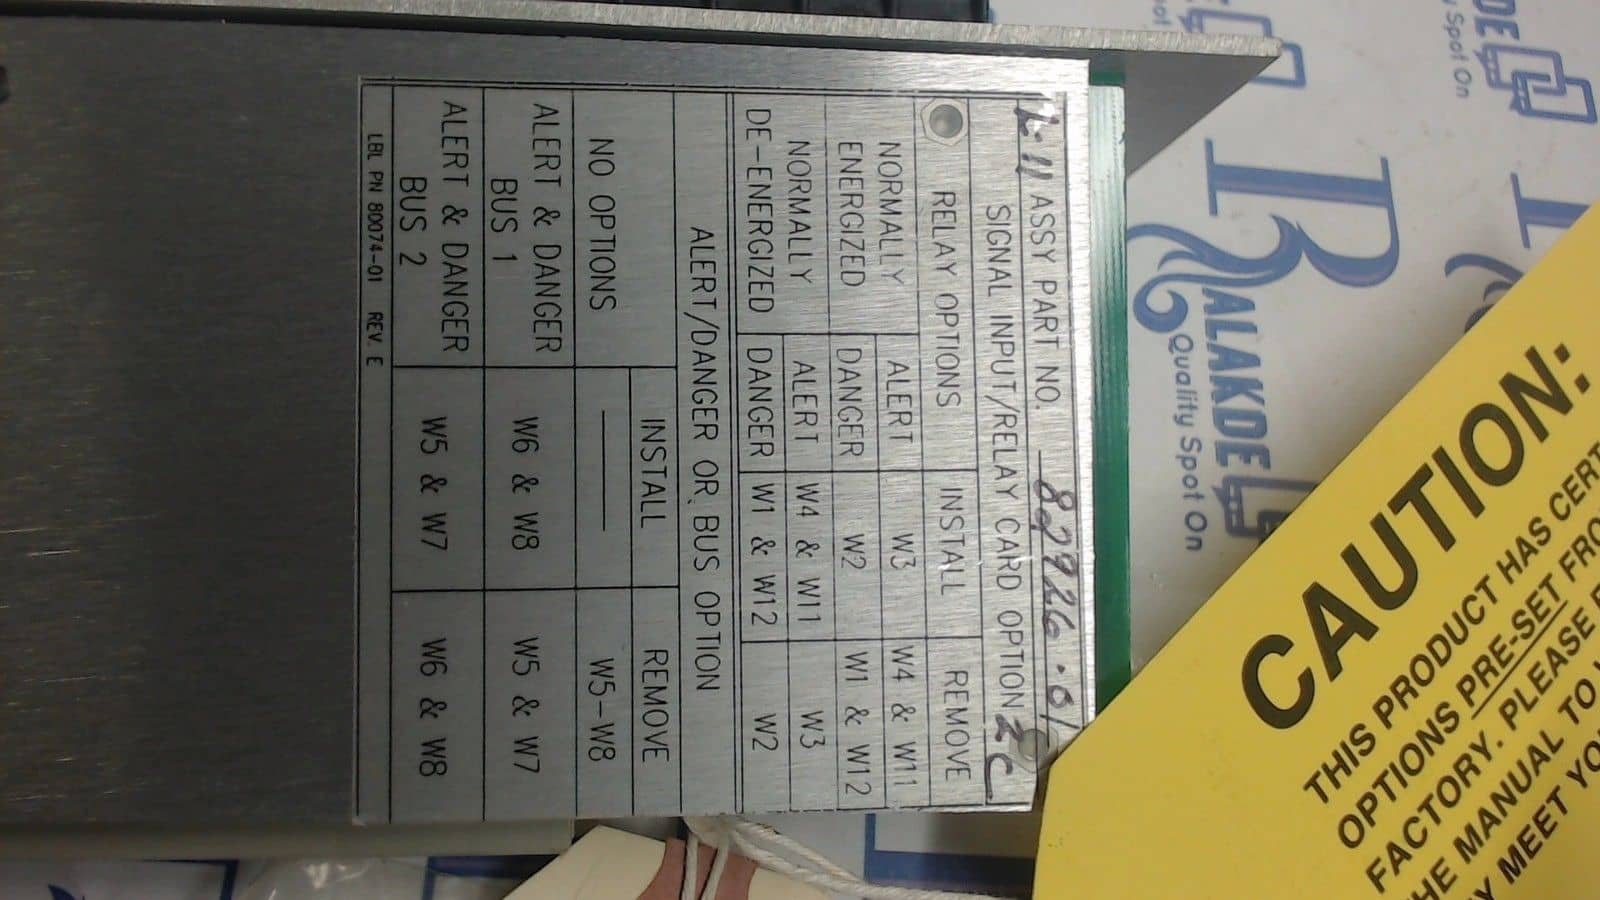 2-11 ASSY PART NO. 82926-01
SIGNAL INPUT/RELAY CARD OPTION 2C
RELAY OPTIONS INSTALL REMOVE
NORMALLY ENERGIZED ALERT W3 W4 & W11
DANGER W2 W1 & W12
NORMALLY DE-ENERGIZED ALERT W4 & W11 W3
DANGER W1 & W12 W2
ALERT/DANGER OR BUS OPTION
INSTALL REMOVE
NO OPTIONS —— W5-W8
ALERT & DANGER BUS 1 W6 & W8 W5 & W7
ALERT & DANGER BUS 2 W5 & W7 W6 & W8
LBL PN 80074-01 REV. E
CAUTION:
THIS PRODUCT HAS CERT
OPTIONS PRE-SET FRO
FACTORY. PLEASE
THE MANUAL TO
MEET YO
BALAKDE
Quality Spot On
Spot On